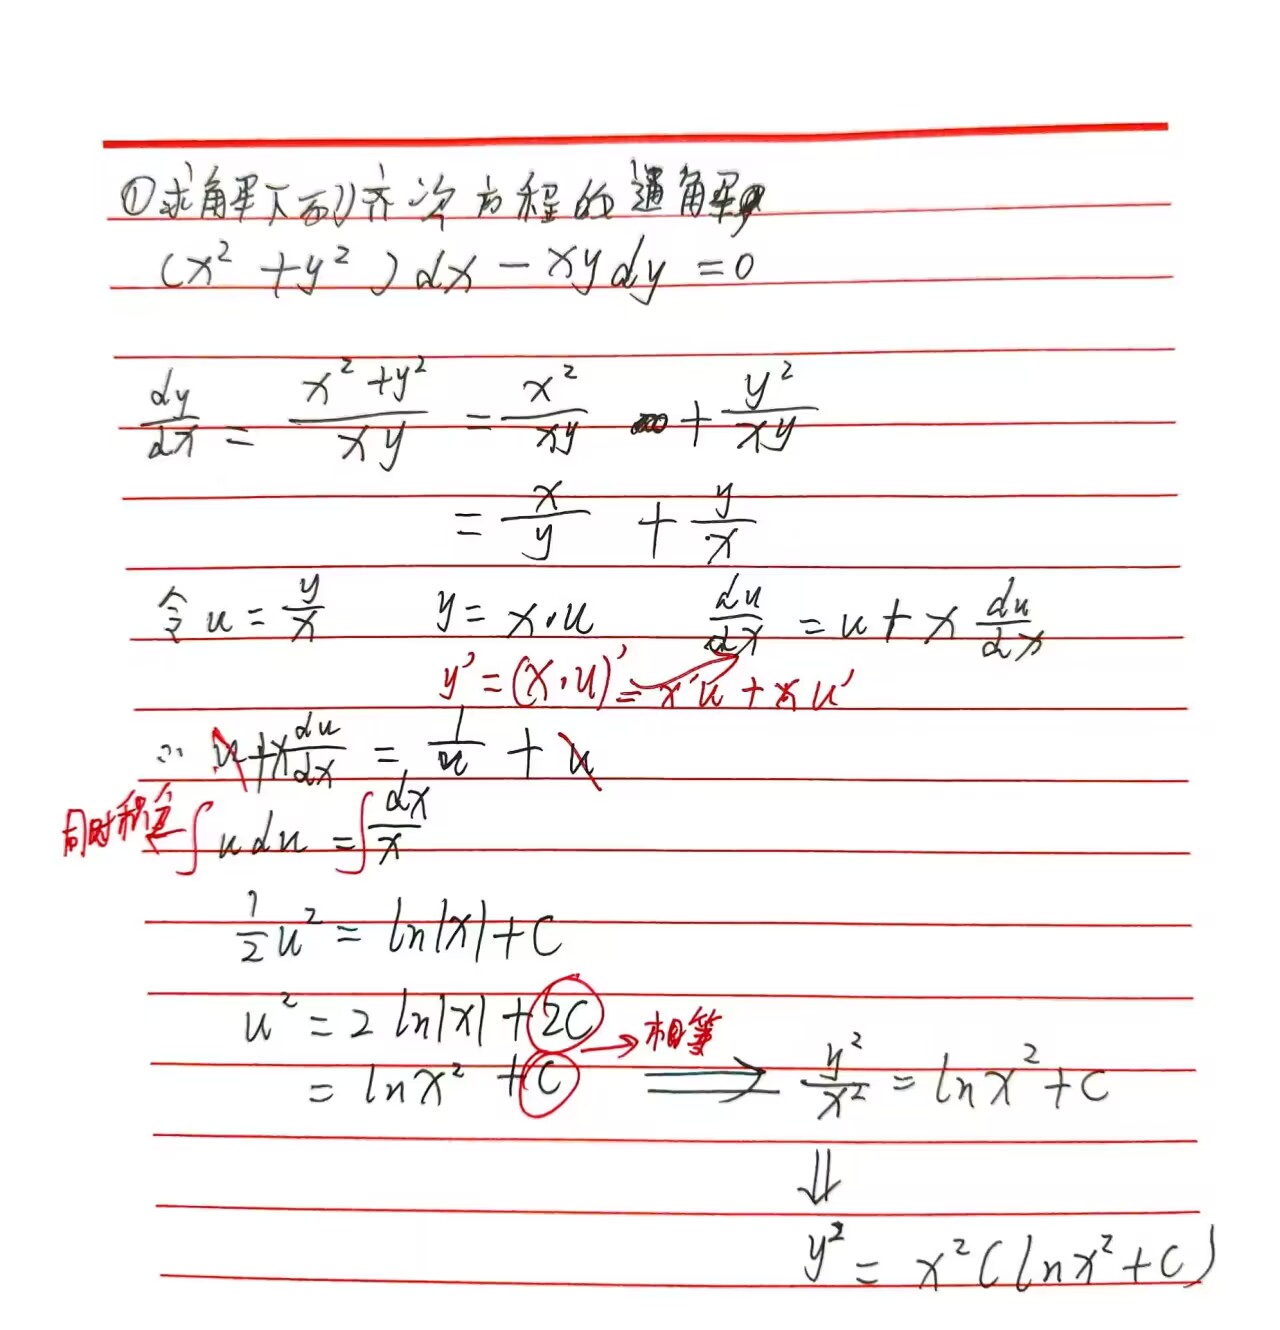 ①求解下列齐次方程的通解
(x² + y²)dx - xydy = 0
dy/dx = (x² + y²)/(xy) = x²/(xy) + y²/(xy)
= x/y + y/x
令 u = y/x y = x·u du/dx = u + x du/dx
y' = (x·u)' = x'u + xu'
∴ u + x du/dx = 1/u + u
同时积分 ∫u du = ∫dx/x
1/2 u² = ln|x| + C
u² = 2 ln|x| + 2C → 相等
= ln x² + C ⟹ y²/x² = ln x² + C
⇓
y² = x²(ln x² + C)